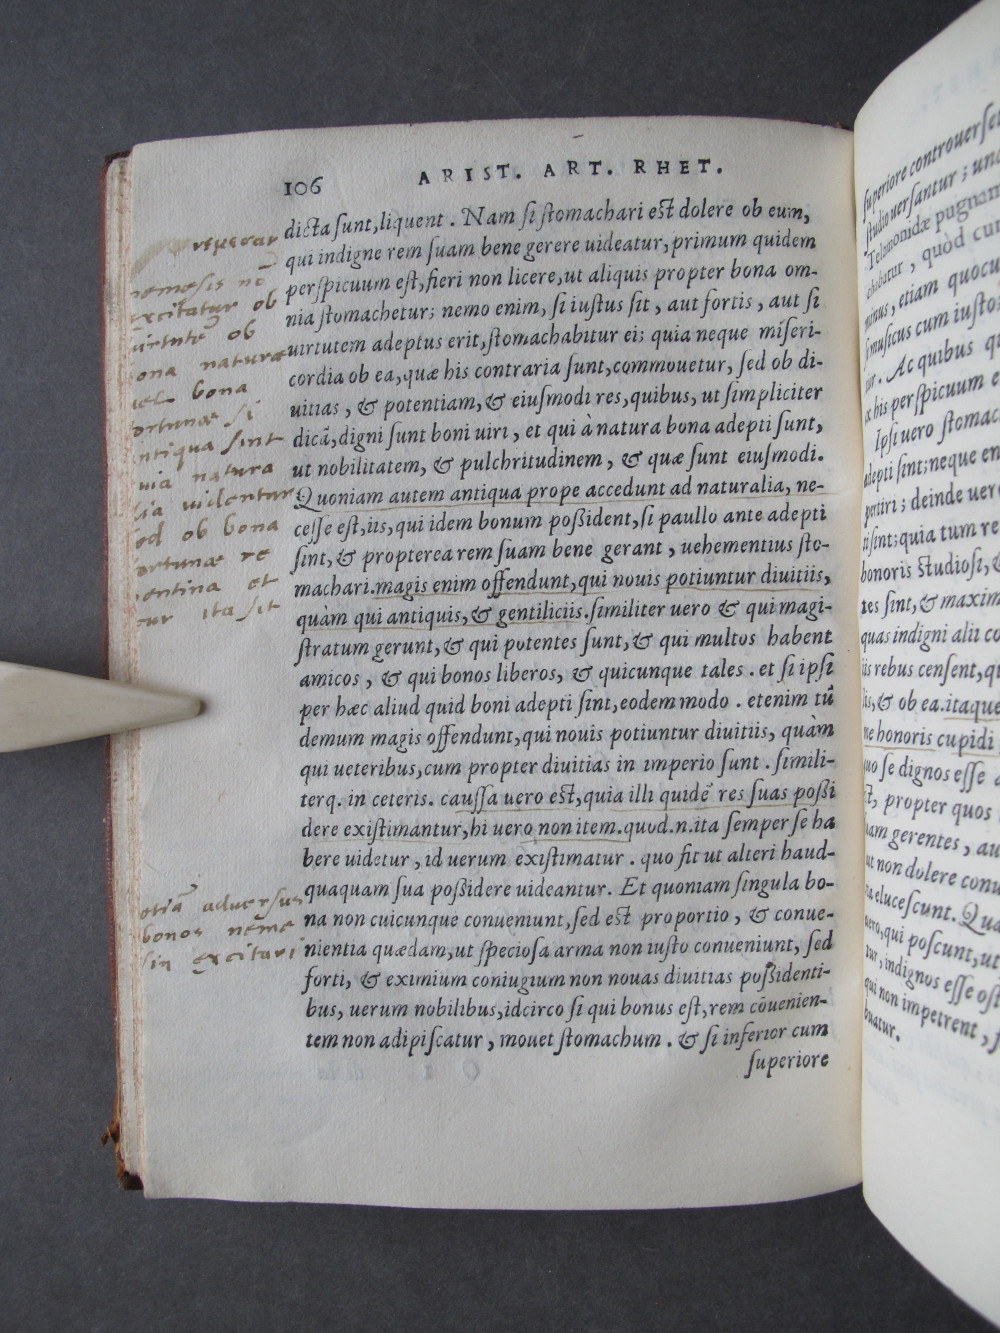 106
ARIST. ART. RHET.
dicta ſunt, liquent. Nam ſi ſtomachari eſt dolere ob eum,
qui indigne rem ſuam bene gerere uideatur, primum quidem
perſpicuum eſt, fieri non licere, ut aliquis propter bona om-
nia ſtomachetur; nemo enim, ſi iuſtus ſit, aut fortis, aut ſi
uirtutem adeptus erit, ſtomachabitur ei; quia neque miſeri-
cordia ob ea, quæ his contraria ſunt, commouetur, ſed ob di-
uitias, & potentiam, & eiuſmodi res, quibus, ut ſimpliciter
dicā, digni ſunt boni uiri, et qui à natura bona adepti ſunt,
ut nobilitatem, & pulchritudinem, & quæ ſunt eiuſmodi.
Quoniam autem antiqua prope accedunt ad naturalia, ne-
ceſſe eſt, iis, qui idem bonum poßident, ſi paullo ante adepti
ſint, & propterea rem ſuam bene gerant, uehementius ſto-
machari. magis enim offendunt, qui nouis potiuntur diuitiis,
quàm qui antiquis, & gentiliciis. ſimiliter uero & qui magi-
ſtratum gerunt, & qui potentes ſunt, & qui multos habent
amicos, & qui bonos liberos, & quicunque tales. et ſi ipſi
per hæc aliud quid boni adepti ſint, eodem modo. etenim tū
demum magis offendunt, qui nouis potiuntur diuitiis, quàm
qui ueteribus, cum propter diuitias in imperio ſunt. ſimili-
terq. in ceteris. cauſſa uero eſt, quia illi quidē res ſuas poßi
dere exiſtimantur, hi uero non item. quod.n. ita ſemper ſe ha
bere uidetur, id uerum exiſtimatur. quo fit ut alteri haud-
quaquam ſua poßidere uideantur. Et quoniam ſingula bo-
na non cuicunque conueniunt, ſed eſt proportio, & conue-
nientia quædam, ut ſpecioſa arma non iuſto conueniunt, ſed
forti, & eximium coniugium non nouas diuitias poßidenti-
bus, uerum nobilibus, idcirco ſi qui bonus eſt, rem cōuenien-
tem non adipiſcatur, mouet ſtomachum. & ſi inferior cum
ſuperiore
nemesis nō
excitatur ob
uirtutē ob
bona naturæ
uel bona
fortunæ si
antiqua sint
quia natura
lia uidentur
sed ob bona
fortunæ re
pentina et
cur ita sit
etiā aduersus
bonos neme
sin excitari
superiore controuerſet
ſtudio uerſantur; und
Telamonidæ pugnam
ehibatur, quòd cum
minus, etiam quocu
ſi muſicus cum iuſto
tur. Ac quibus qu
ex his perſpicuum e
Ipſi uero ſtomac
adepti ſint; neque en
pertiri; deinde uer
ti ſint; quia tum re
bonoris ſtudioſi, &
tes ſint, & maxim
quas indigni alii co
iis rebus cenſent, qu
lis, & ob ea. itaque
ne honoris cupidi
quo ſe dignos eſſe
ſt, propter quos
uam gerentes, au
ut non dolere conu
ia eluceſcunt. Qua
uero, qui poſcunt, ut
tur, indignos eſſe oſt
qui non impetrent, ſ
buatur.